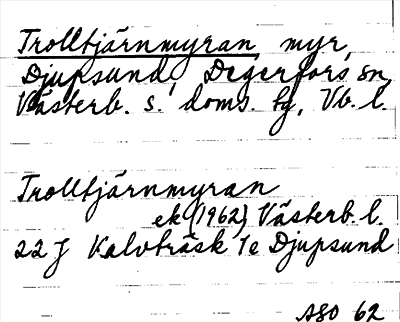 Trolltjärnmyran, myr,
Djupsund, Degerfors sn,
Västerb. s. doms. tg, Vb. l.
Trolltjärnmyran
ek (1962) Västerb. l.
22 J Kalvträsk 1e Djupsund
ASO 62